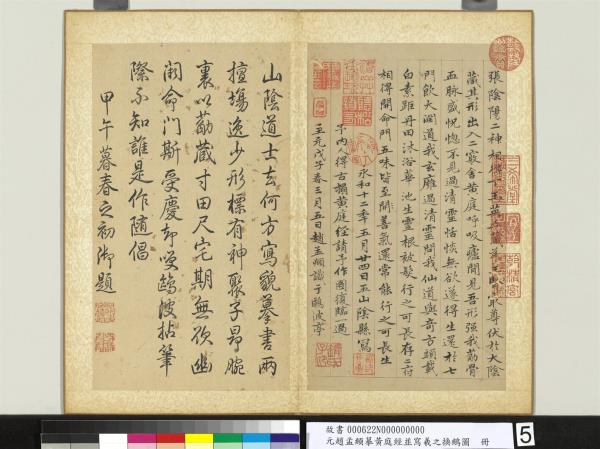 藏其形出入二竅舍黃庭呼吸虛間見吾形強我筋骨
血脉盛恍惚不見過清靈恬惔無欲遂得生還於七
門飲大淵道我玄雍過清靈問我仙道與奇方頭戴
白素距丹田沐浴華池生靈根被髮行之可長存二府
相得開命門五味皆至開善氣還常能行之可長生
永和十二年五月廿四日五山陰縣寫
子內人得古搨黃庭經請予作圖復臨一過
至元戊子春三月五日趙孟頫識于鷗波亭
山陰道士去何方寫貌摹書兩
擅場逸少形標有神聚子昂腕
裏以筋藏寸田尺宅期無欲幽
闕命門斯受慶却喚鷗波拈筆
際不知誰是作隨倡
甲午暮春之初御題
故書 000622N000000000
元趙孟頫摹黃庭經並寫羲之換鵝圖 冊
5